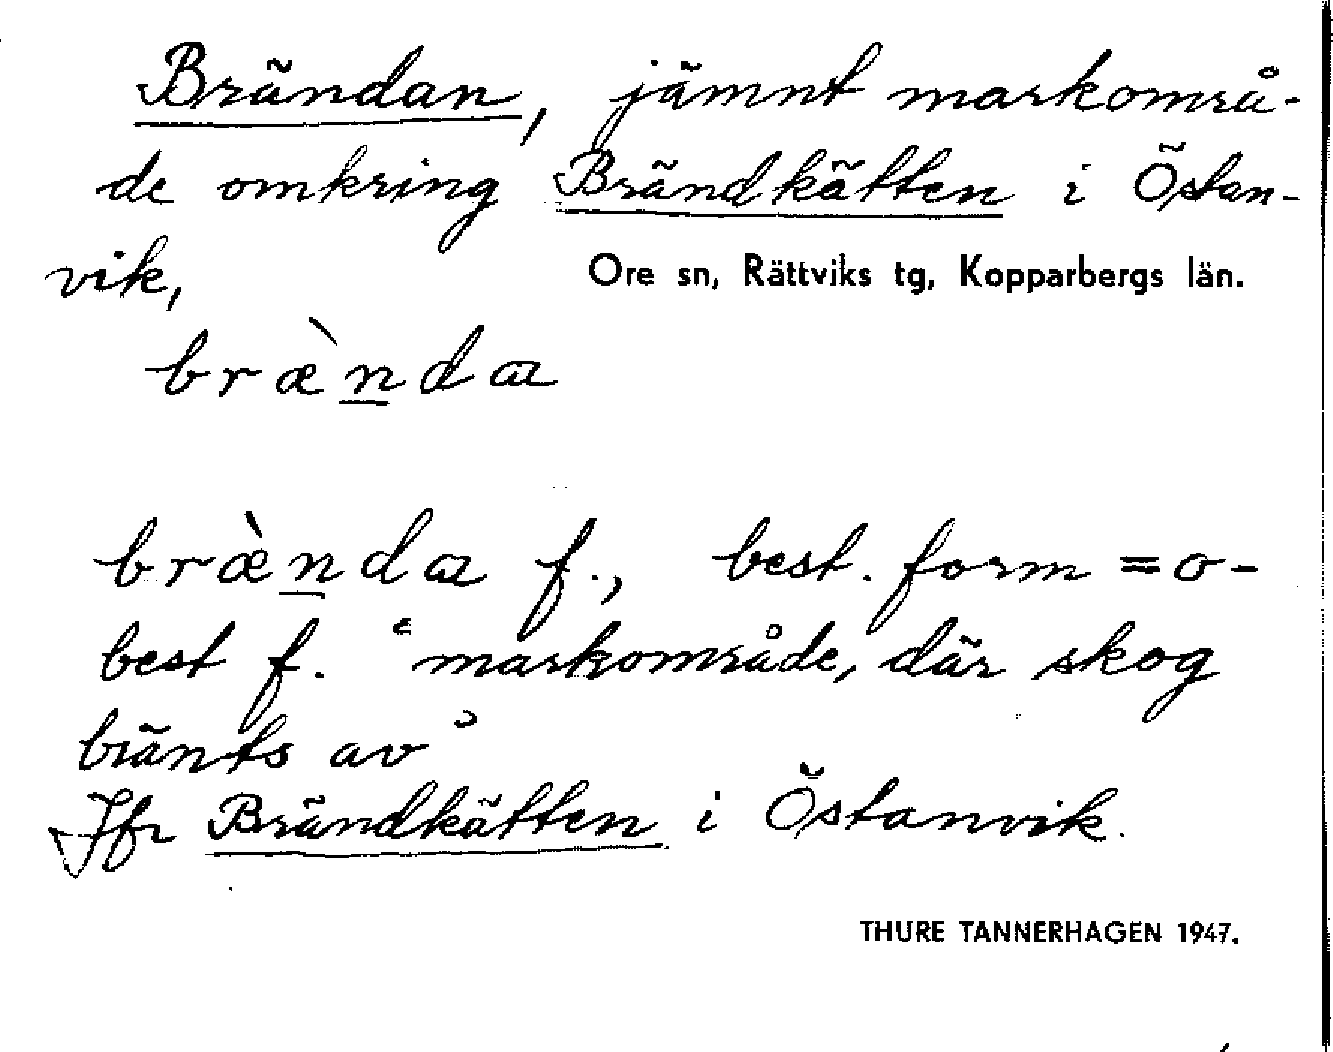 Brändan, jämnt markområ-
de omkring Brändkätten i Östan-
vik, Ore sn, Rättviks tg, Kopparbergs län.
bræ̀nda
bræ̀nda f., best. form = o-
best f. “markområde, där skog
bränts av”
Jfr Brändkätten i Östanvik.
THURE TANNERHAGEN 1947.